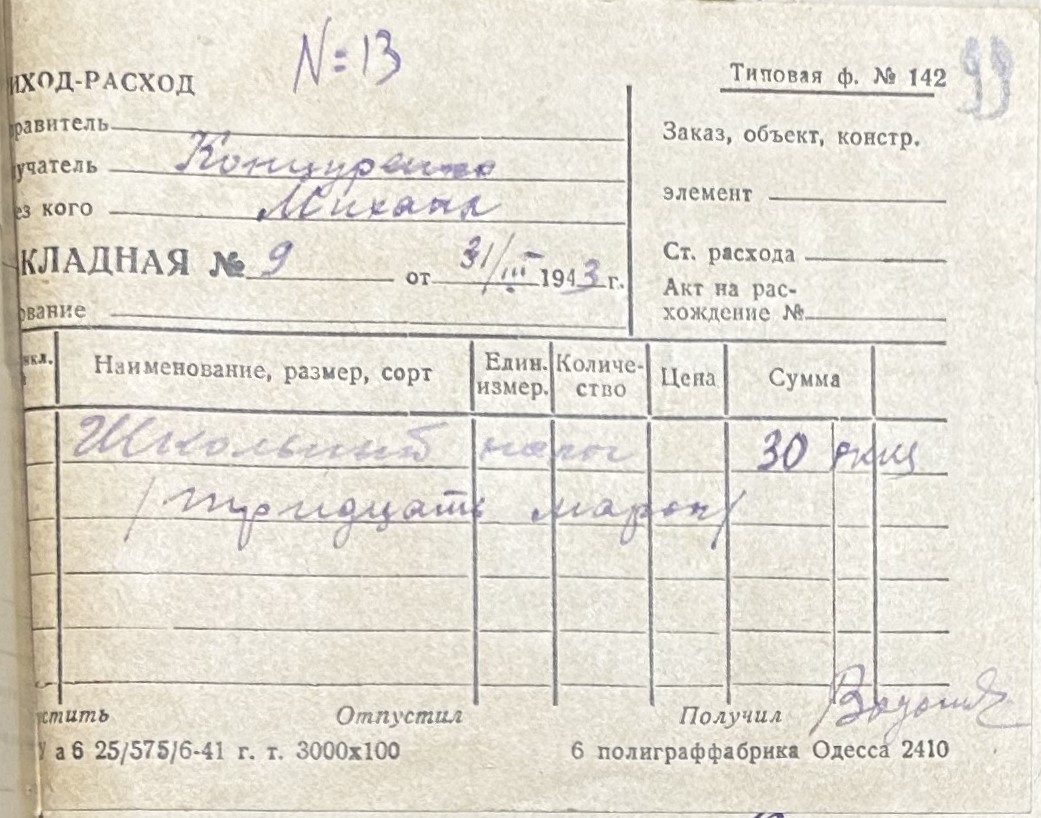 N=13
99
ИХОД-РАСХОД
Типовая ф. № 142
равитель
Заказ, объект, констр.
учатель
ез кого Михаил
элемент
КЛАДНАЯ № 9 от 31/III 1943 г.
Ст. расхода
Акт на рас-
хождение №
ование
нкл.
Наименование, размер, сорт
Един.
измер.
Количе-
ство
Цена
Сумма
Школьний налог 30 ркш
/тридцать марок/
стить Отпустил Получил
а6 25/575/6-41 г. т. 3000х100
6 полиграффабрика Одесса 2410